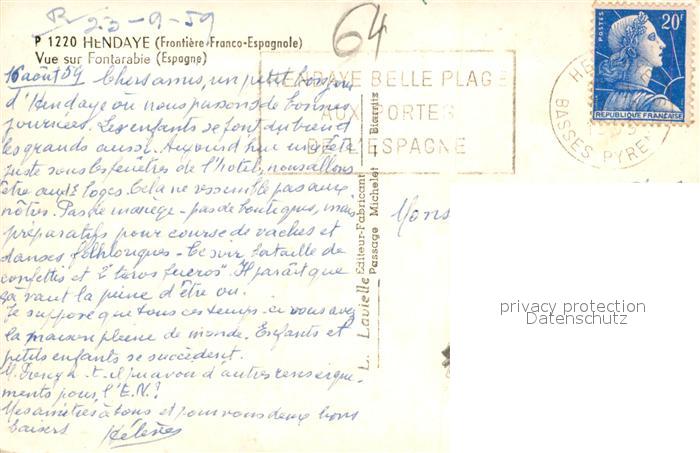 R 23-9-59
64
P 1220 HENDAYE (Frontière Franco-Espagnole)
Vue sur Fontarabie (Espagne)
HENDAYE BELLE PLAGE
AUX PORTES
DE L'ESPAGNE
POSTES
20F
REPUBLIQUE FRANÇAISE
BASSES PYREN
16 août 59 Chers amis, un petit bonjour
d'Hendaye où nous passons de bonnes
journées. Les enfants se font du bien et
les grands aussi. Aujourd'hui
juste sous les fenêtres de l'hôtel, nous allons
être aux 1è loges. Cela ne ressemble pas aux
nôtres. Pas de manège - pas de boutiques, mais
préparatifs pour course de vaches et
danses folkloriques - Ce soir bataille de
confettis et 2 "toros fueros". Il paraît que
ça vaut la peine d'être vu.
Je suppose que tous ces temps-ci vous avez
la maison pleine de monde. Enfants et
petits enfants se succèdent.
M. a-t-il pu avoir d'autres renseigne-
ments pour l'E.N.?
Mes amitiés à tous et pour vous deux bons
baisers Hélène
L. Lavielle Editeur-Fabricant
Passage Michelet - Biarritz
Mons
privacy protection
Datenschutz